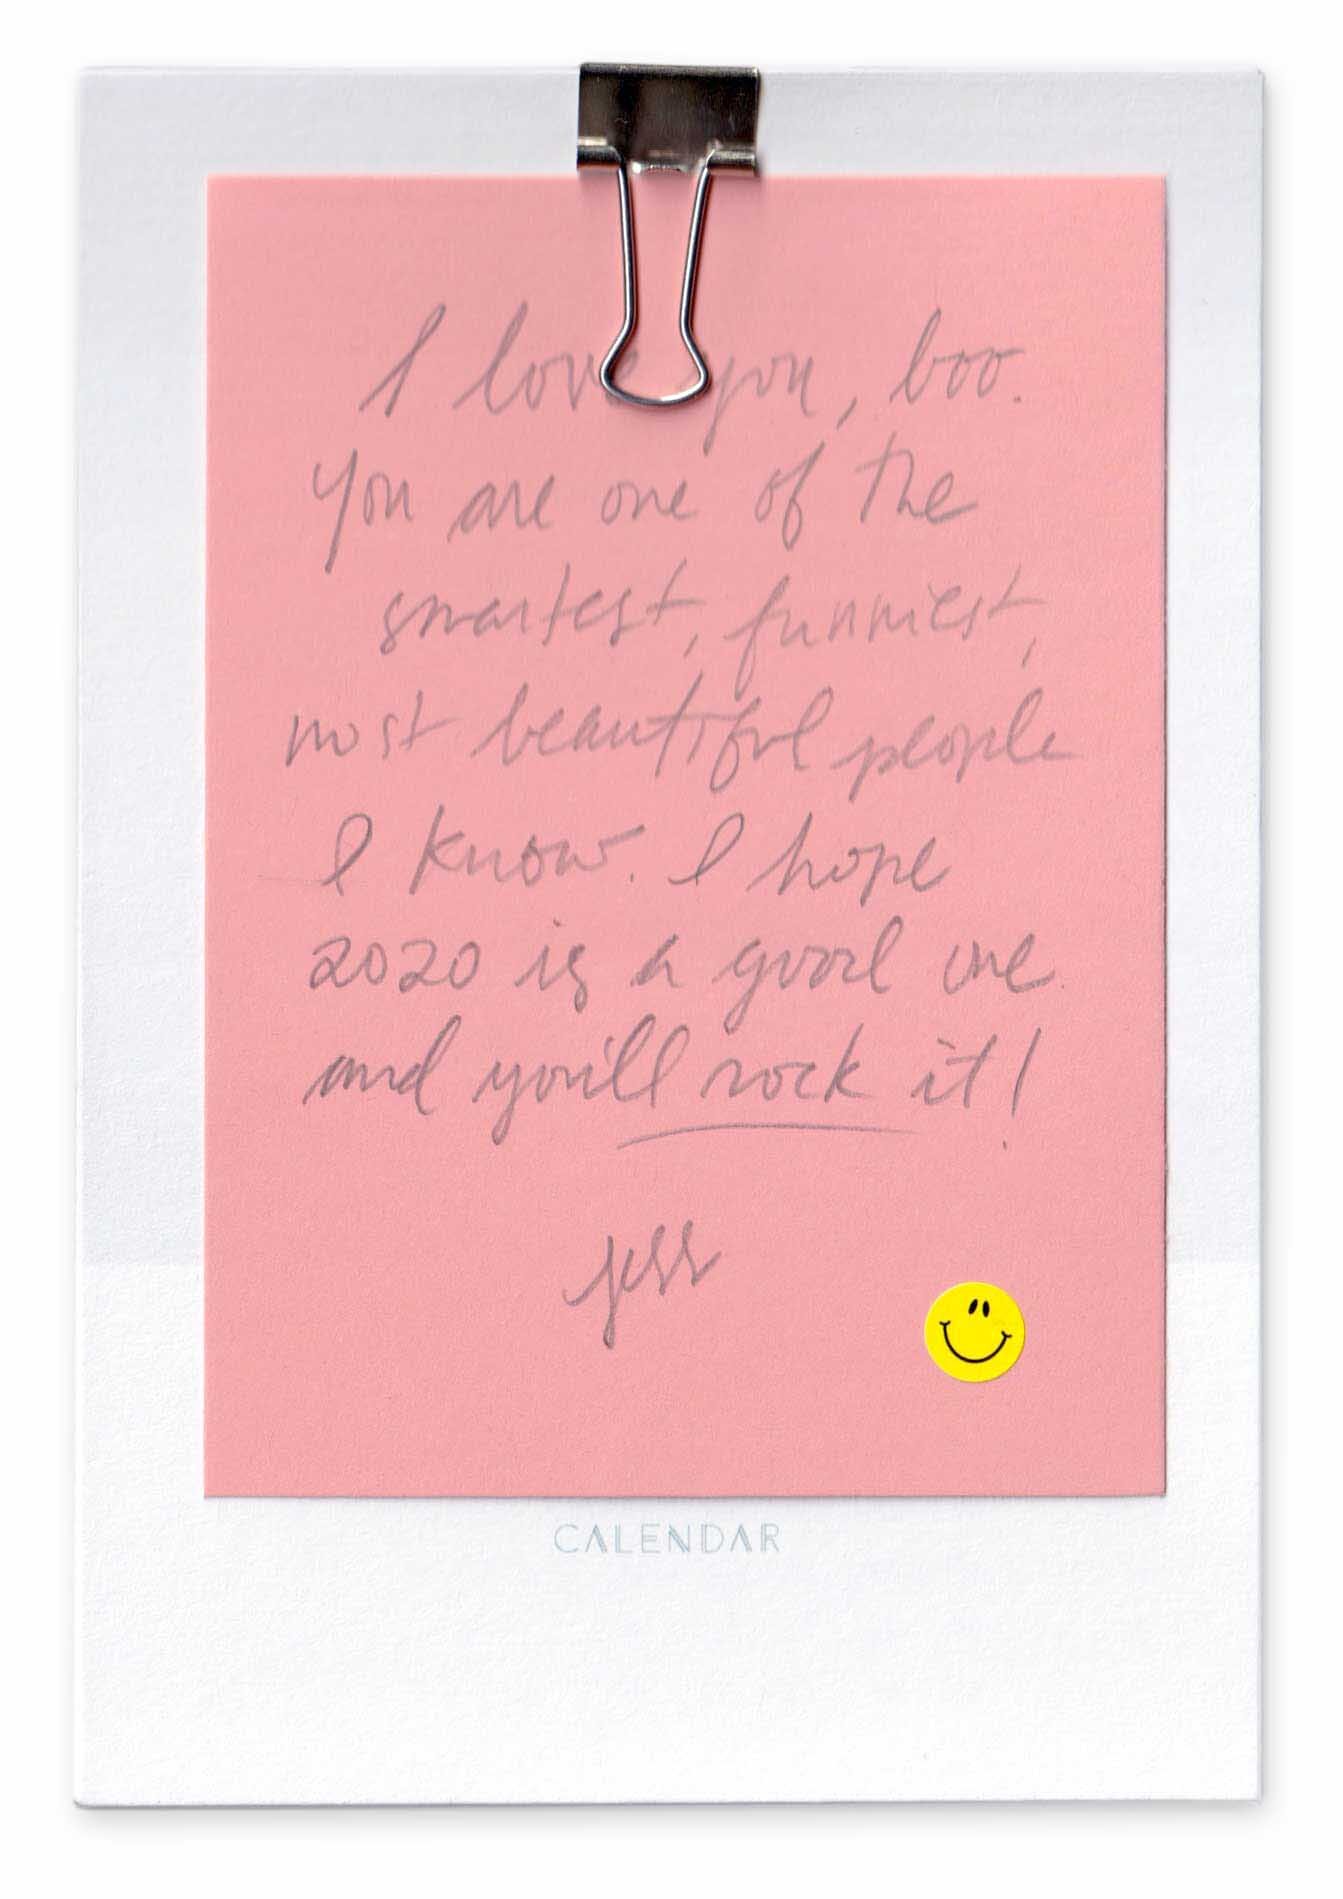 I love you, boo.
You are one of the
smartest, funniest,
most beautiful people
I know. I hope
2020 is a good one
and you'll rock it!
jess
CALENDAR